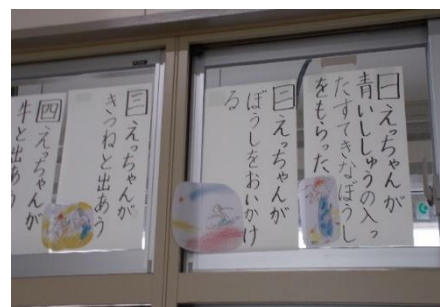 一 えっちゃんが
青いししゅうの入っ
たすてきなぼうし
をもらった
二 えっちゃんが
ぼうしをおいかけ
る
三 えっちゃんが
きつねと出あう
四 えっちゃんが
牛と出あう